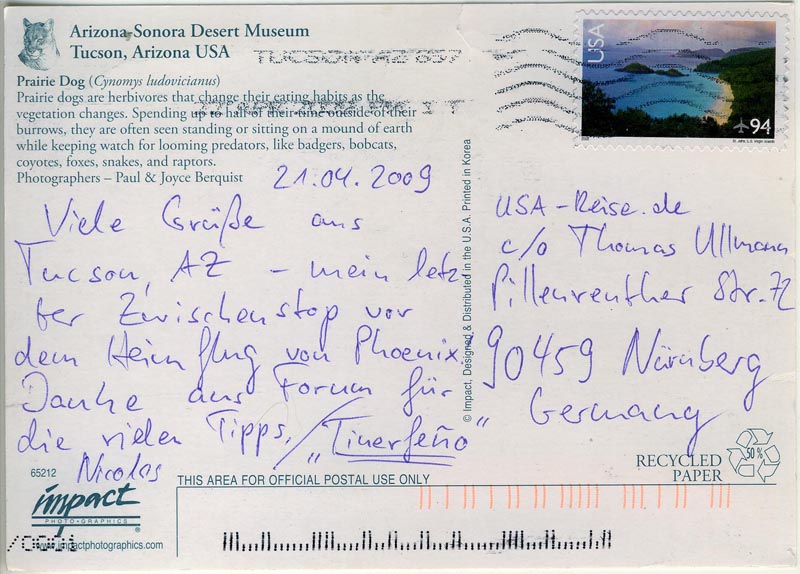 Arizona-Sonora Desert Museum
Tucson, Arizona USA
TUCSON AZ 857
Prairie Dog (Cynomys ludovicianus)
Prairie dogs are herbivores that change their eating habits as the
vegetation changes. Spending up to half of their time outside of their
burrows, they are often seen standing or sitting on a mound of earth
while keeping watch for looming predators, like badgers, bobcats,
coyotes, foxes, snakes, and raptors.
Photographers – Paul & Joyce Berquist
21.04.2009
Viele Grüße aus
Tucson, AZ – mein letz-
ter Zwischenstop vor
dem Heimflug von Phoenix.
Danke ans Forum für
die vielen Tipps.
Nicolas / "Tinerfeño"
© Impact, Designed & Distributed in the U.S.A. Printed in Korea
USA
94
St. John, U.S. Virgin Islands
USA-Reise.de
c/o Thomas Ullmann
Pillenreuther Str. 72
90459 Nürnberg
Germany
50%
RECYCLED
PAPER
THIS AREA FOR OFFICIAL POSTAL USE ONLY
65212
impact
PHOTO•GRAPHICS
®
www.impactphotographics.com